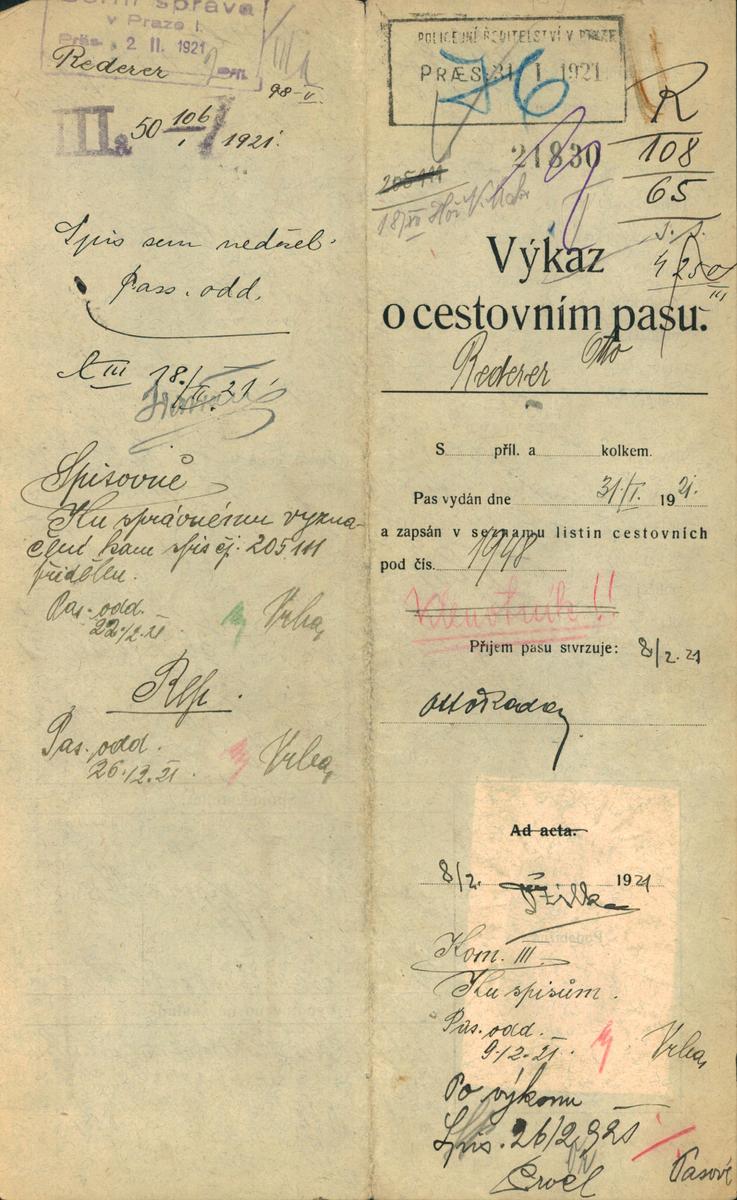 správa
v Praze I.
Präs. 2 II. 1921
Rederer
98-II
IIIa 50 106/I 1921.
Spis sem nedošel.
Pass. odd.
III 18./II. 21.
Spisovně
Ku správnému vyzna-
čení kam spis čj. 205111
přidělen.
Pas. odd.
22./2. 21
Vrba
Rep.
Pas. odd.
26./2. 21
Vrba
POLICEJNÍ ŘEDITELSTVÍ V PRAZE
PRÆS. 31 I. 1921
76
R
108
65
21830
205111
18/IV
Výkaz
o cestovním pasu.
Rederer Otto
S příl. a kolkem.
Pas vydán dne 31/I. 1921.
a zapsán v seznamu listin cestovních
pod čís. 1948
Klenotník!!
Příjem pasu stvrzuje: 8/2. 21
Ad acta.
8/2. 1921
Kom. III.
Ku spisům.
Pas. odd.
9./2. 21.
Vrba
Po výkonu
Spis. 26/2 921
Pasové